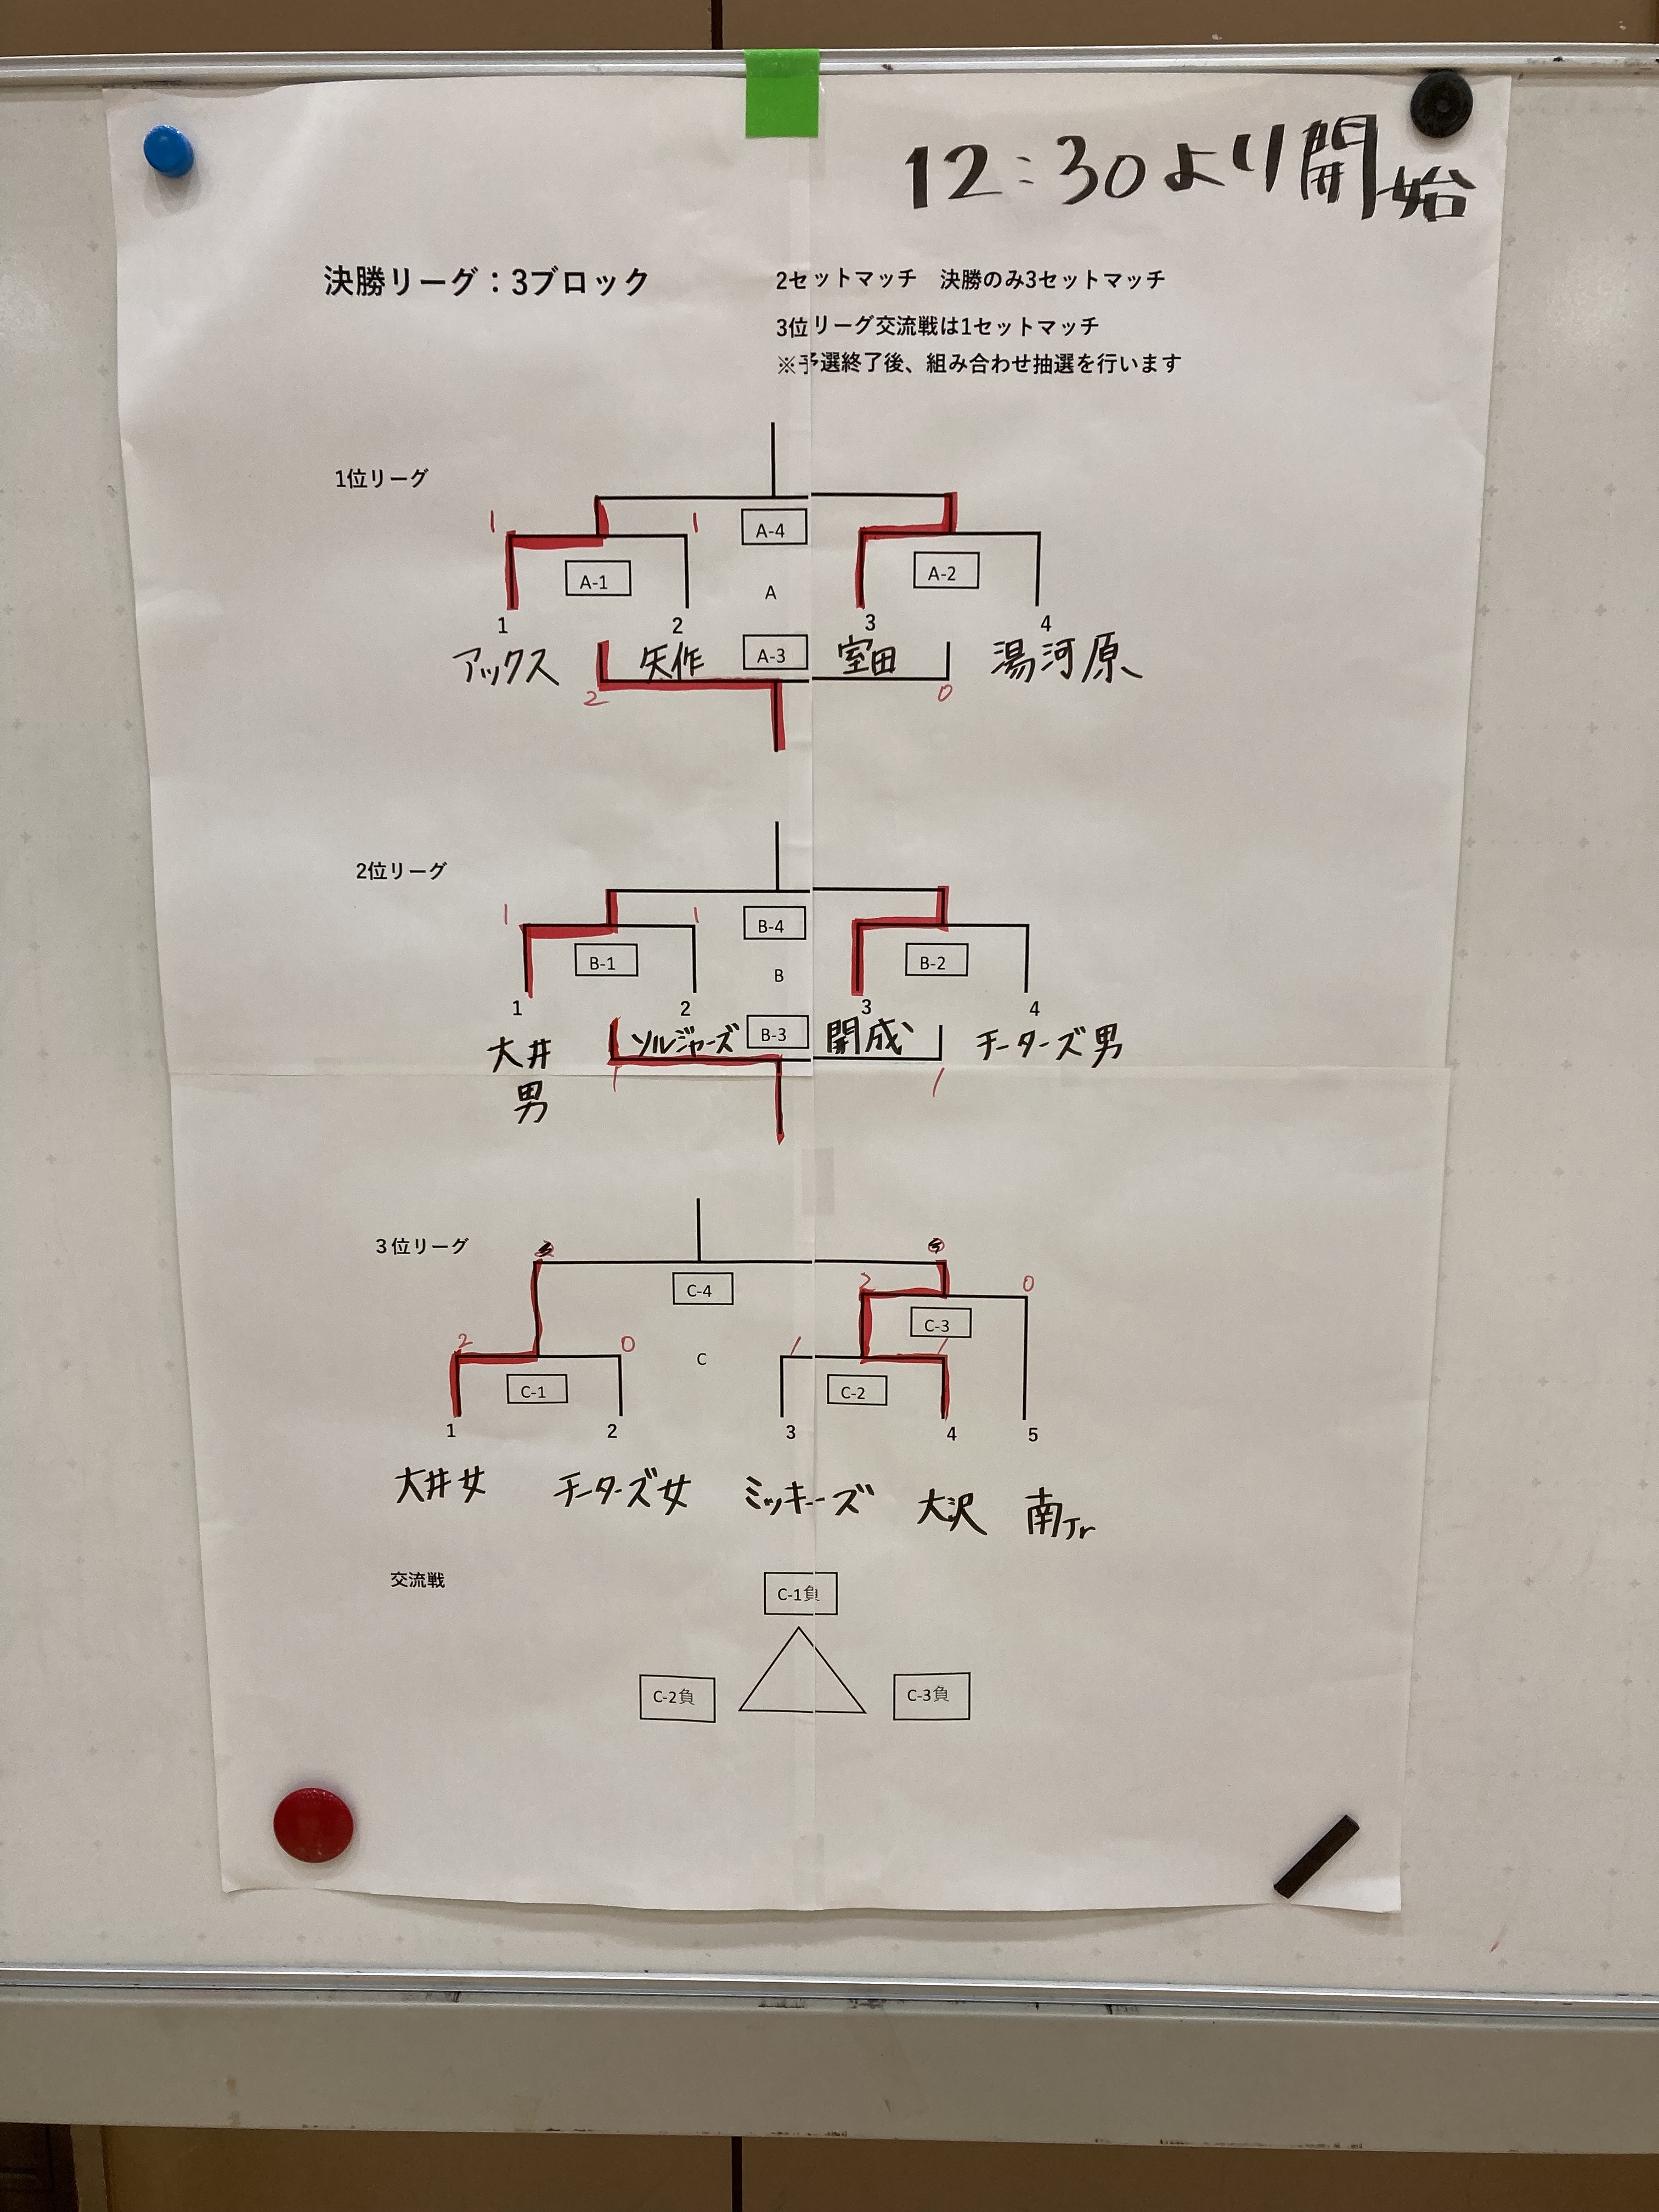 12:30より開始
決勝リーグ：3ブロック
2セットマッチ　決勝のみ3セットマッチ
3位リーグ交流戦は1セットマッチ
※予選終了後、組み合わせ抽選を行います
1位リーグ
1 1
A-4
A-1 A-2
A
1 2 3 4
アックス 矢作 A-3 室田 湯河原
2 0
2位リーグ
1 1
B-4
B-1 B-2
B
1 2 3 4
大井男 ソルジャーズ B-3 開成 チーターズ男
1 1
3位リーグ
C-4 2 0
C-3
2 0 1 1
C
C-1 C-2
1 2 3 4 5
大井女 チーターズ女 ミッキーズ 大沢 南Jr
交流戦
C-1負
C-2負 C-3負